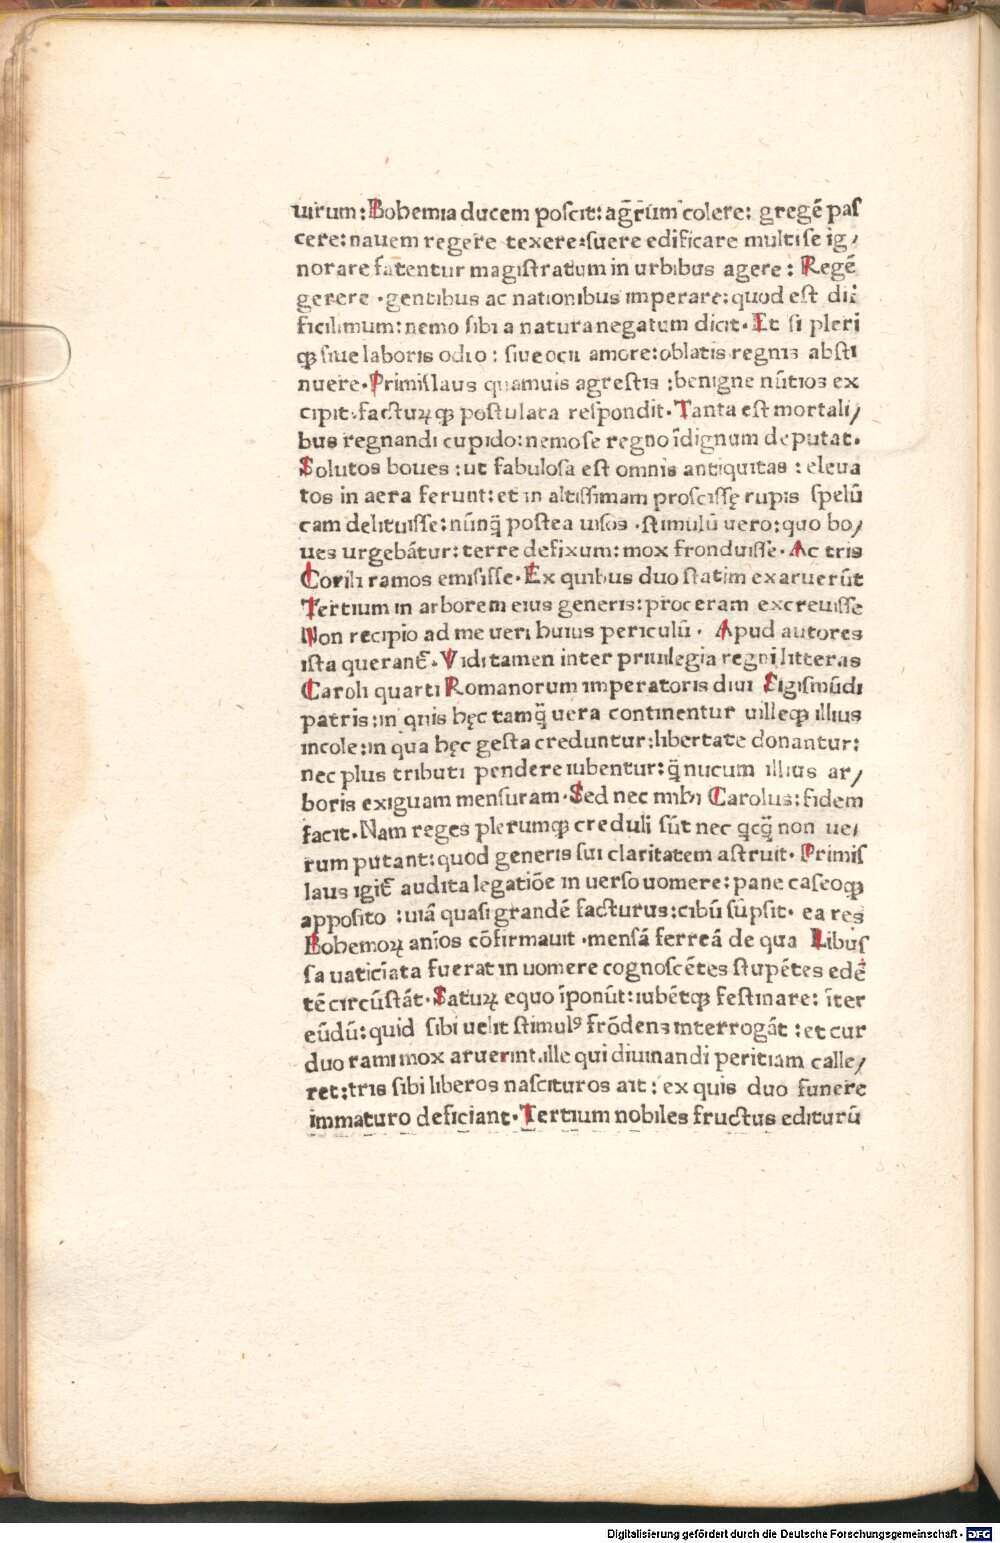 uirum: Bohemia ducem poscit: ag̃rum colere: gregē paſ
cere: nauem regere texere: ſuere edificare multi ſe ig⸗
norare fatentur magiſtratum in urbibus agere: Regē
gerere ·gentibus ac nationibus imperare: quod eſt dif
ficilimum: nemo ſibi a natura negatum dicit· Et ſi pleri
qꝫ ſiue laboris odio: ſiue ocii amore: oblatis regnis abſti
nuere· Primiſlaus quamuis agreſtis : benigne nūtios ex
cipit· facturꝝqꝫ poſtulata reſpondit· Tanta eſt mortali⸗
bus regnandi cupido: nemo ſe regno īdignum deputat·
Solutos boues : ut fabuloſa eſt omnis antiquitas : eleua
tos in aera ferunt: et in altiſſimam proſciſſę rupis ſpelū
cam delituiſſe: nūnq̄ poſtea uiſos ·ſtimulū uero: quo bo⸗
ues urgebātur: terre defixum: mox fronduiſſe· Ac tris
Corili ramos emiſiſſe· Ex quibus duo ſtatim exaruerūt
Tertium in arborem eius generis: proceram excreuiſſe
Non recipio ad me ueri huius periculū· Apud autores
iſta querant̄· Vidi tamen inter priuilegia regni litteras
Caroli quarti Romanorum imperatoris diui Sigiſmūdi
patris: in quis hęc tamq̄ uera continentur uilleqꝫ illius
incole: in qua hęc geſta creduntur: libertate donantur:
nec plus tributi pendere iubentur: q̄ nucum illius ar⸗
boris exiguam menſuram· Sed nec mihi Carolus: fidem
facit· Nam reges plerumqꝫ creduli ſūt nec qcq̄ non ue⸗
rum putant: quod generis ſui claritatem aſtruit· Primiſ
laus igit̄ audita legatiōe in uerſo uomere: pane caſeoqꝫ
appoſito : uiā quaſi grandē facturus: cibū ſūpſit· ea res
Bohemoꝝ anīos cōfirmauit ·menſā ferreā de qua Libuſ
ſa uaticīata fuerat in uomere cognoſcētes ſtupētes edē
tē circūſtāt· Saturꝝ equo īponūt: iubētqꝫ feſtinare: īter
eūdū: quid ſibi uelit ſtimulꝰ frōdens interrogāt : et cur
duo rami mox aruerint. ille qui diuinandi peritiam calle⸗
ret: tris ſibi liberos naſcituros ait: ex quis duo funere
immaturo deficiant· Tertium nobiles fructus editurū
Digitalisierung gefördert durch die Deutsche Forschungsgemeinschaft - DFG